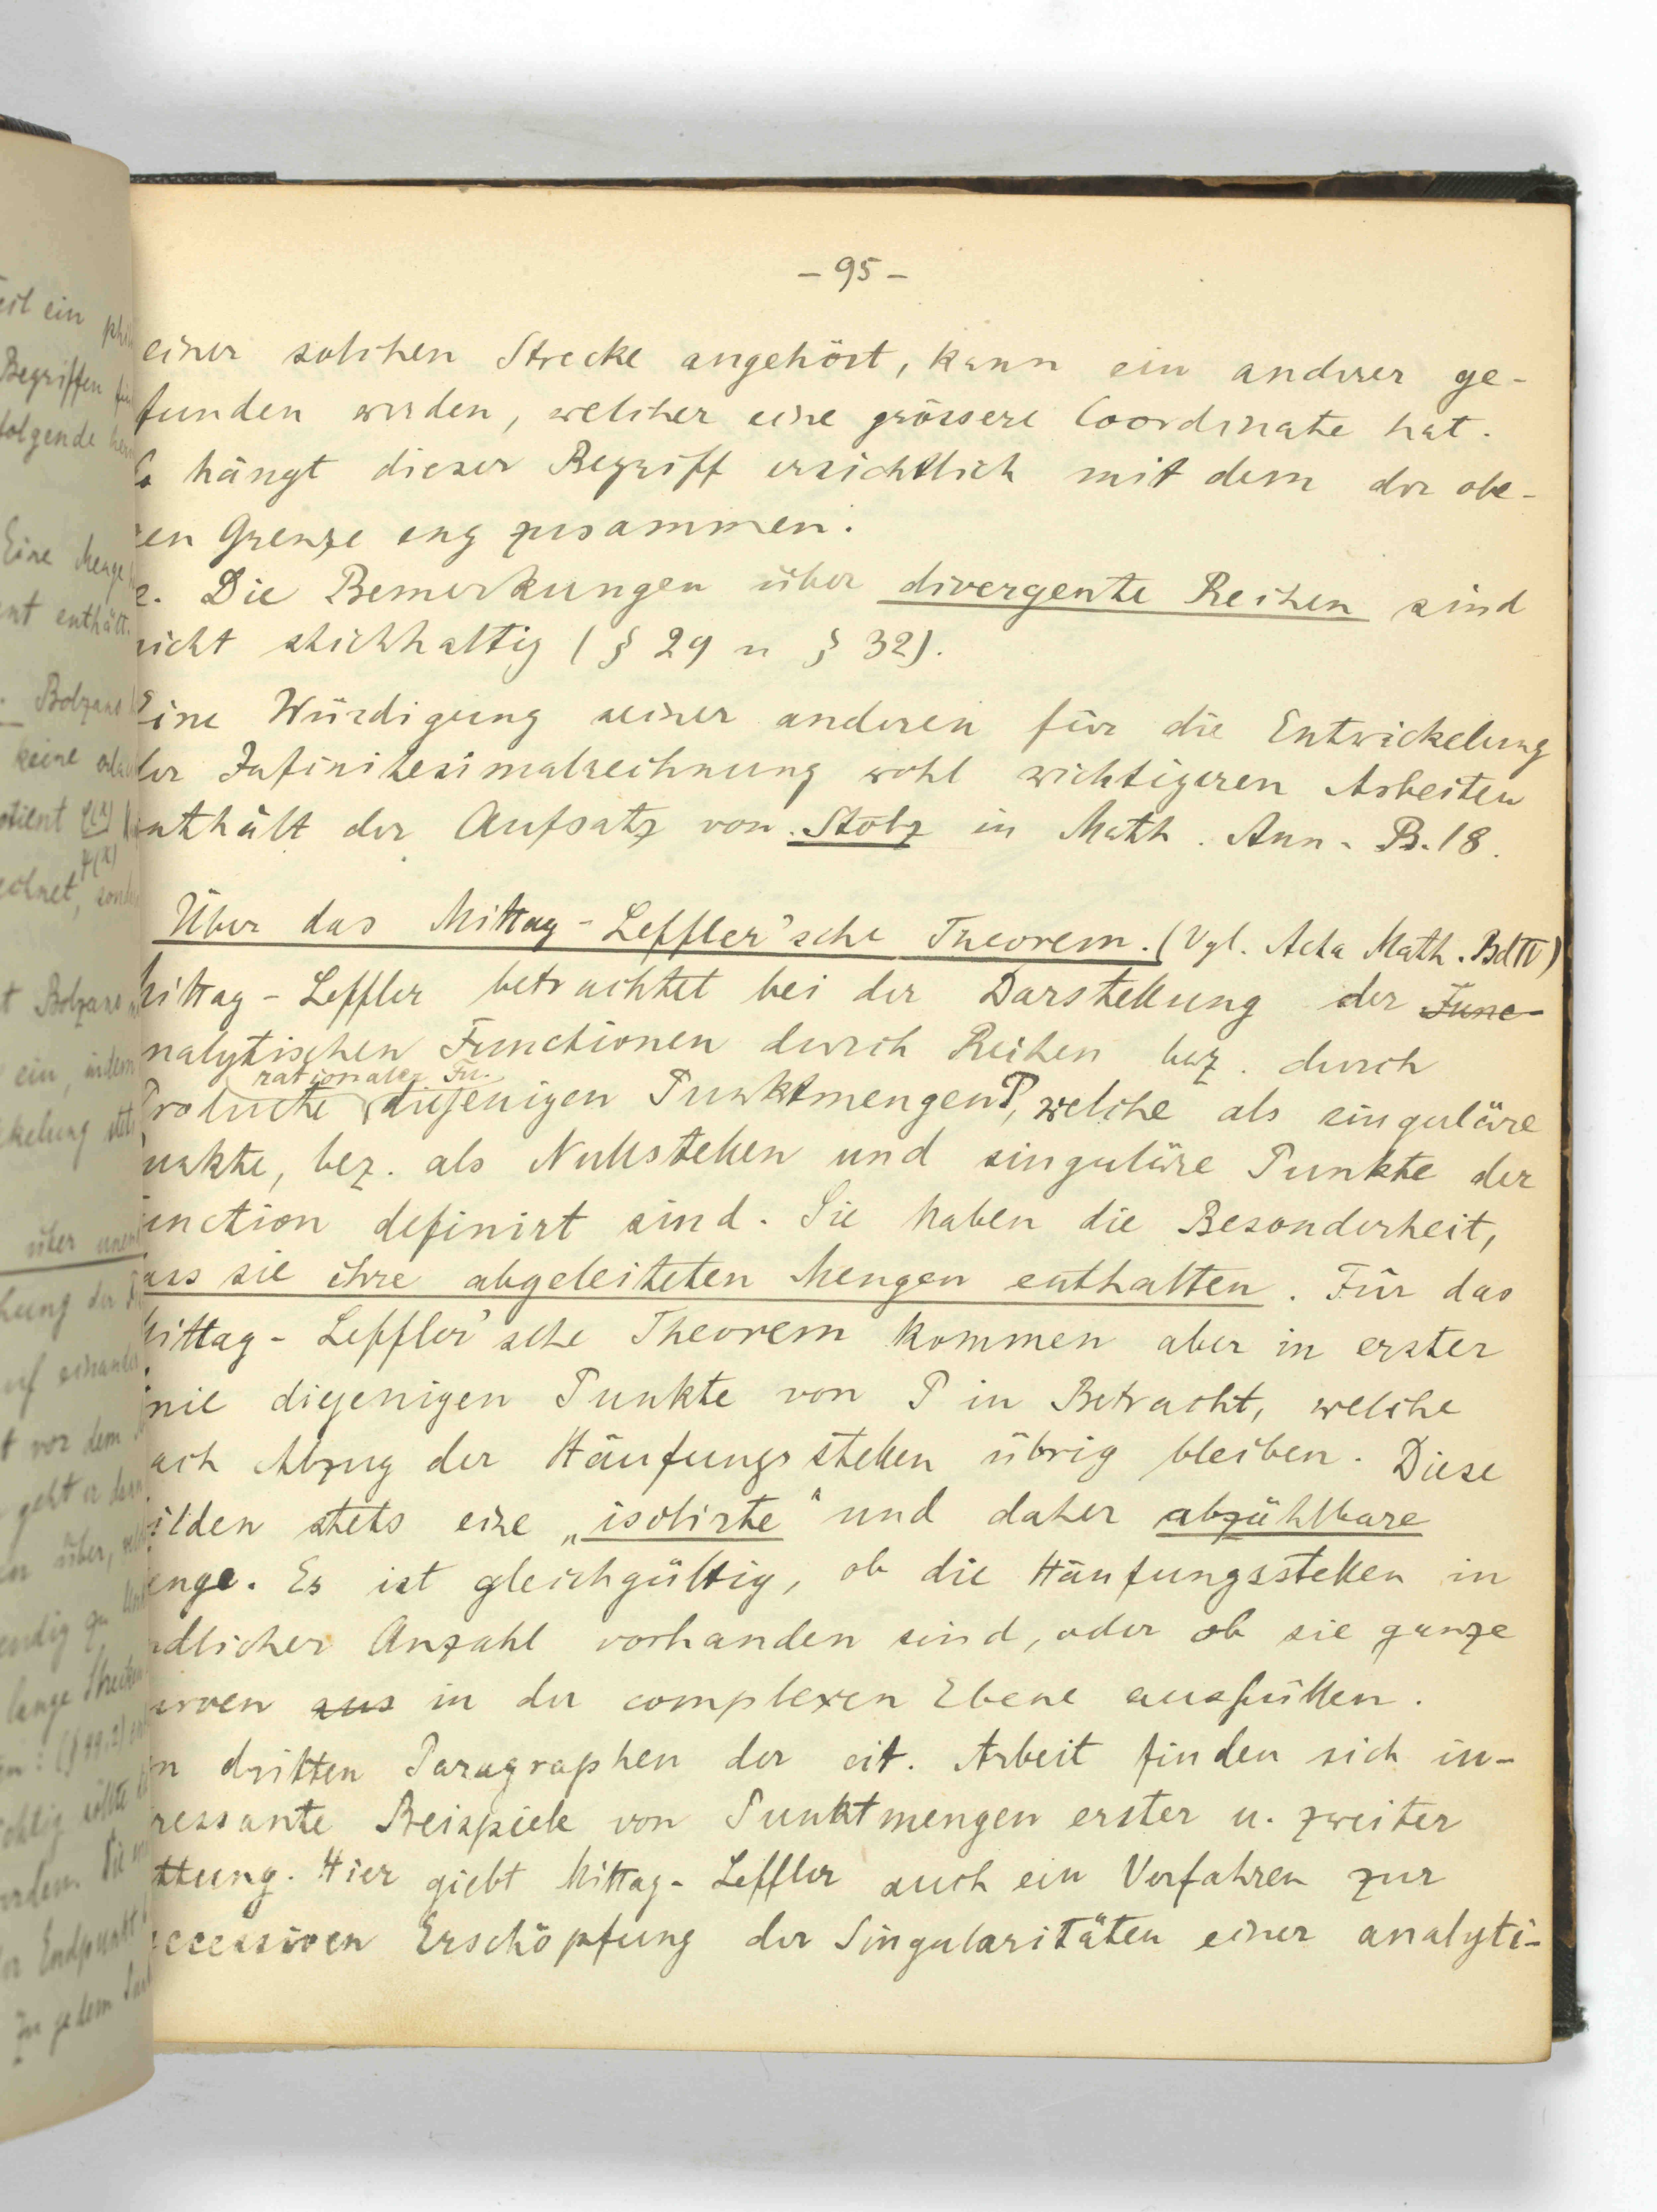 - 95 -
einer solchen Strecke angehört, kann ein anderer ge-
funden werden, welcher eine grössere Coordinate hat.
hängt dieser Begriff ersichtlich mit dem der obe-
en Grenze eng zusammen.
2. Die Bemerkungen über divergente Reihen sind
nicht stichhaltig (§ 29 u § 32).
Eine Würdigung seiner anderen für die Entwickelung
der Infinitesimalrechnung wohl wichtigeren Arbeiten
enthält der Aufsatz von Stolz in Math. Ann. B. 18.
Über das Mittag-Leffler'sche Theorem. (Vgl. Acta Math. Bd IV)
Mittag-Leffler betrachtet bei der Darstellung der Func-
nalytischen Functionen durch Reihen bez. durch
rationaler Fu.
Producte diejenigen Punktmengen P, welche als singuläre
unkte, bez. als Nullstellen und singuläre Punkte der
unction definirt sind. Sie haben die Besonderheit,
ass sie ihre abgeleiteten Mengen enthalten. Für das
Mittag-Leffler'sche Theorem kommen aber in erster
inie diejenigen Punkte von P in Betracht, welche
ach Abzug der Häufungsstellen übrig bleiben. Diese
ilden stets eine „isolirte“ und daher abzählbare
enge. Es ist gleichgültig, ob die Häufungsstellen in
ndlicher Anzahl vorhanden sind, oder ob sie ganze
urven aus in der complexen Ebene ausfüllen.
n dritten Paragraphen der cit. Arbeit finden sich in-
ressante Beispiele von Punktmengen erster u. zweiter
ttung. Hier giebt Mittag-Leffler auch ein Verfahren zur
ccessiven Erschöpfung der Singularitäten einer analyti-